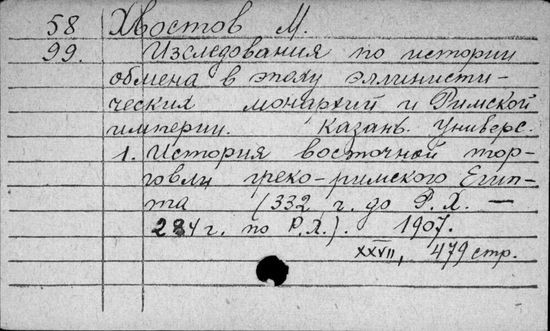 58 Хвостов М.
99. Изследования по истории
обмена в эпоху эллинисти-
ческих монархий и Римской
империи. Казань. Универс.
1. История восточной тор-
говли греко-римского Егип-
та (332 г. до Р. Х. —
284 г. по Р.Х.). 1907.
XXVII, 479 стр.